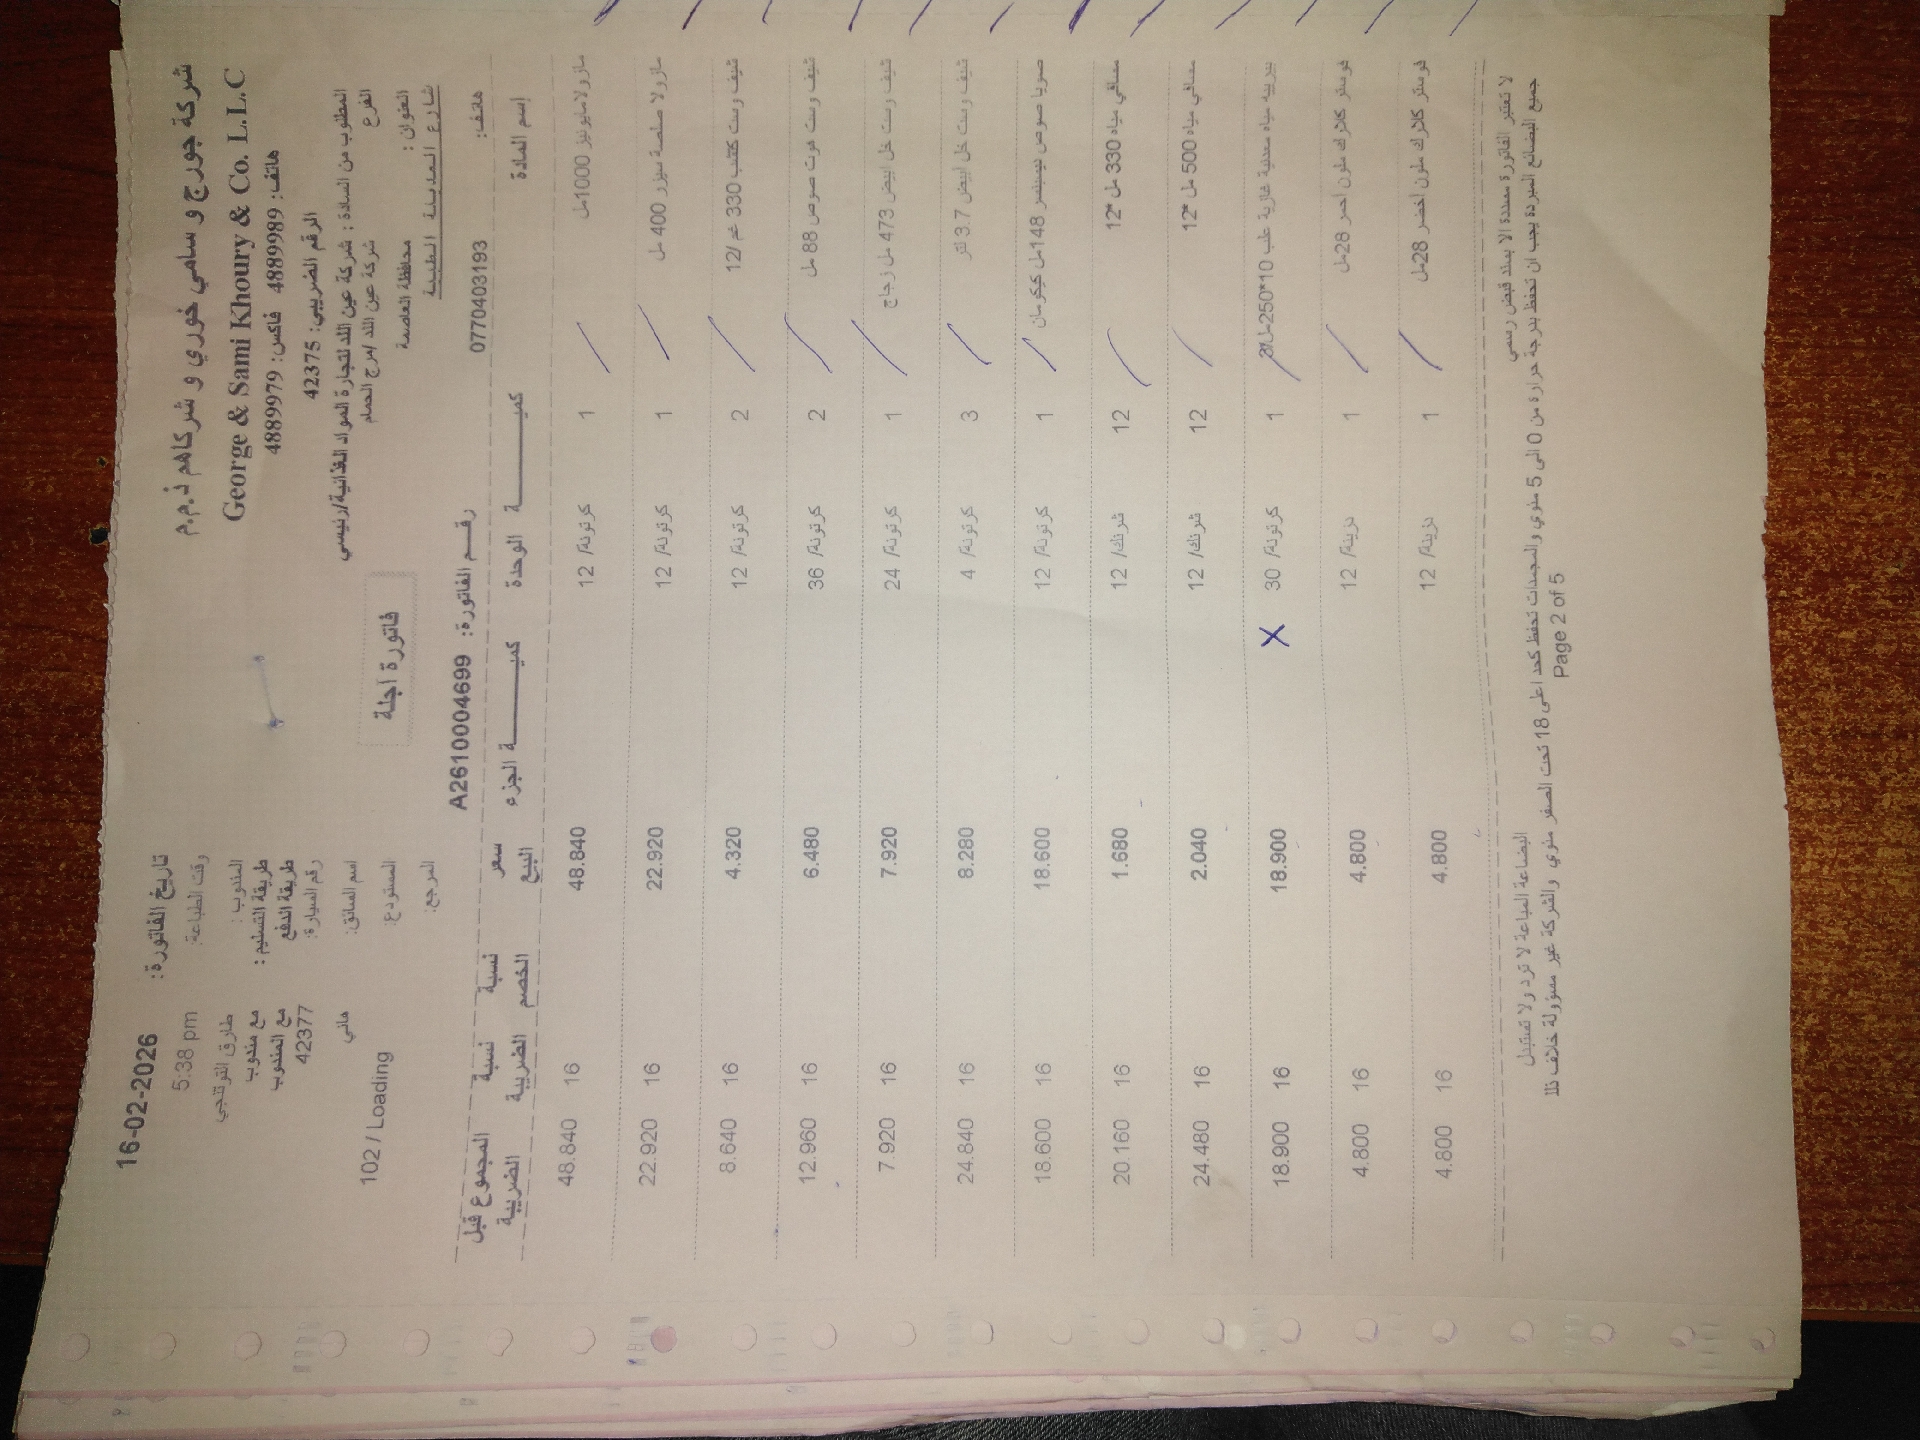 شركة جورج و سامي خوري و شركاهم ذ.م.م
George & Sami Khoury & Co. L.L.C
هاتف: 4889989 فاكس: 4889979
الرقم الضريبي: 42375
المطلوب من السادة : شركة عين اللد لتجارة المواد الغذائية/رئيسي
الفرع شركة عين اللد /مرج الحمام
العنوان : محافظة العاصمة
شارع المدينة الطبية
هاتف: 0770403193
فاتورة اجلة
رقم الفاتورة: A2610004699
تاريخ الفاتورة: 16-02-2026
وقت الطباعة: 5:38 pm
المندوب :
طريقة التسليم : مع مندوب
طريقة الدفع مع المندوب
رقم السيارة: 42377
اسم السائق: هاني
المستودع: 102 / Loading
المرجع:
إسم المادة كميـــة الوحدة كميـــة الجزء سعر البيع نسبة الخصم نسبة الضريبة المجموع قبل الضريبة
مازولا مايونيز 1000مل 1 كرتونة/ 12 48.840 16 48.840
مازولا صلصة سيزر 400 مل 1 كرتونة/ 12 22.920 16 22.920
شيف وست كتشب 330 غم /12 2 كرتونة/ 12 4.320 16 8.640
شيف وست هوت صوص 88 مل 2 كرتونة/ 36 6.480 16 12.960
شيف وست خل ابيض 473 مل زجاج 1 كرتونة/ 24 7.920 16 7.920
شيف وست خل ابيض 3.7 لتر 3 كرتونة/ 4 8.280 16 24.840
صويا صوص ديسبنسر 148مل كيكومان 1 كرتونة/ 12 18.600 16 18.600
مسافي مياه 330 مل *12 12 شرنك/ 12 1.680 16 20.160
مسافي مياه 500 مل *12 12 شرنك/ 12 2.040 16 24.480
بيرييه مياه معدنية غازية علب 10*250مل 1 كرتونة/ 30 X 18.900 16 18.900
فوستر كلارك ملون احمر 28مل 1 دزينة/ 12 4.800 16 4.800
فوستر كلارك ملون اخضر 28مل 1 دزينة/ 12 4.800 16 4.800
لا تعتبر الفاتورة مسددة الا بسند قبض رسمي البضاعة المباعة لا ترد ولا تستبدل
جميع البضائع المبردة يجب ان تحفظ بدرجة حرارة من 0 الى 5 مئوي والمجمدات تحفظ كحد اعلى 18 تحت الصفر مئوي والشركة غير مسؤولة خلاف ذلك
Page 2 of 5